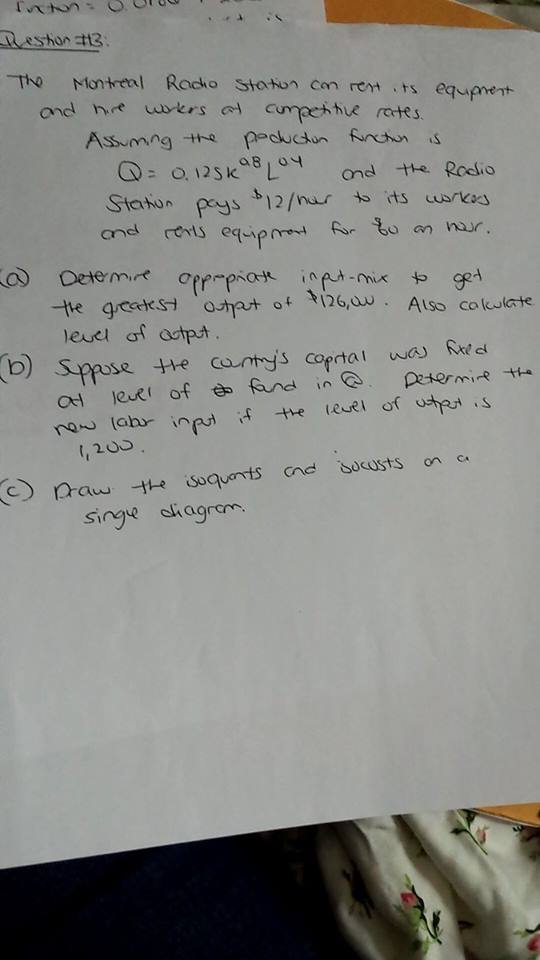 Question #13:
The Montreal Radio Station can rent its equipment
and hire workers at competitive rates.
Assuming the production function is
Q = 0.125K^0.8 L^0.4 and the Radio
Station pays $12/hour to its workers
and rents equipment for $80 an hour.
(a) Determine appropiate input-mix to get
the greatest output of $126,000. Also calculate
level of output.
(b) Suppose the country's capital was fixed
at level of found in a. Determine the
new labor input if the level of output is
1,200.
(c) Draw the isoquants and isocosts on a
single diagram.